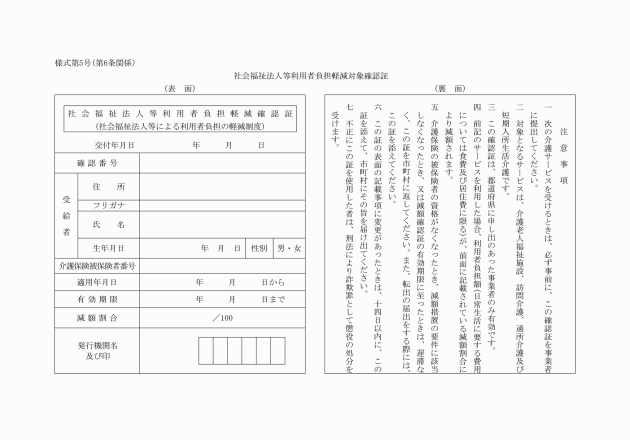 様式第5号(第6条関係)
社会福祉法人等利用者負担軽減対象確認証
(表　面)
社会福祉法人等利用者負担軽減確認証
(社会福祉法人等による利用者負担の軽減制度)
交付年月日　年　月　日
確認番号
受給者
住　所
フリガナ
氏　名
生年月日　年　月　日　性別　男・女
介護保険被保険者番号
適用年月日　年　月　日から
有効期限　年　月　日まで
減額割合　／100
発行機関名
及び印
(裏　面)
注意事項
一　次の介護サービスを受けるときは、必ず事前に、この確認証を事業者
に提出してください。
二　対象となるサービスは、介護老人福祉施設、訪問介護、通所介護及び
短期入所生活介護です。
三　この確認証は、都道府県に申し出のあった事業者のみ有効です。
四　前記のサービスを利用した場合、利用者負担額(日常生活に要する費用
については食費及び居住費に限る)が、前面に記載されている減額割合に
より減額されます。
五　介護保険の被保険者の資格がなくなったとき、減額措置の要件に該当
しなくなったとき、又は減額確認証の有効期限に至ったときは、遅滞な
く、この証を市町村に返してください。また、転出の届出をする際には、
この証を添えてください。
六　この証の表面の記載事項に変更があったときは、十四日以内に、この
証を添えて、市町村にその旨を届け出てください。
七　不正にこの証を使用した者は、刑法により詐欺罪として懲役の処分を
受けます。